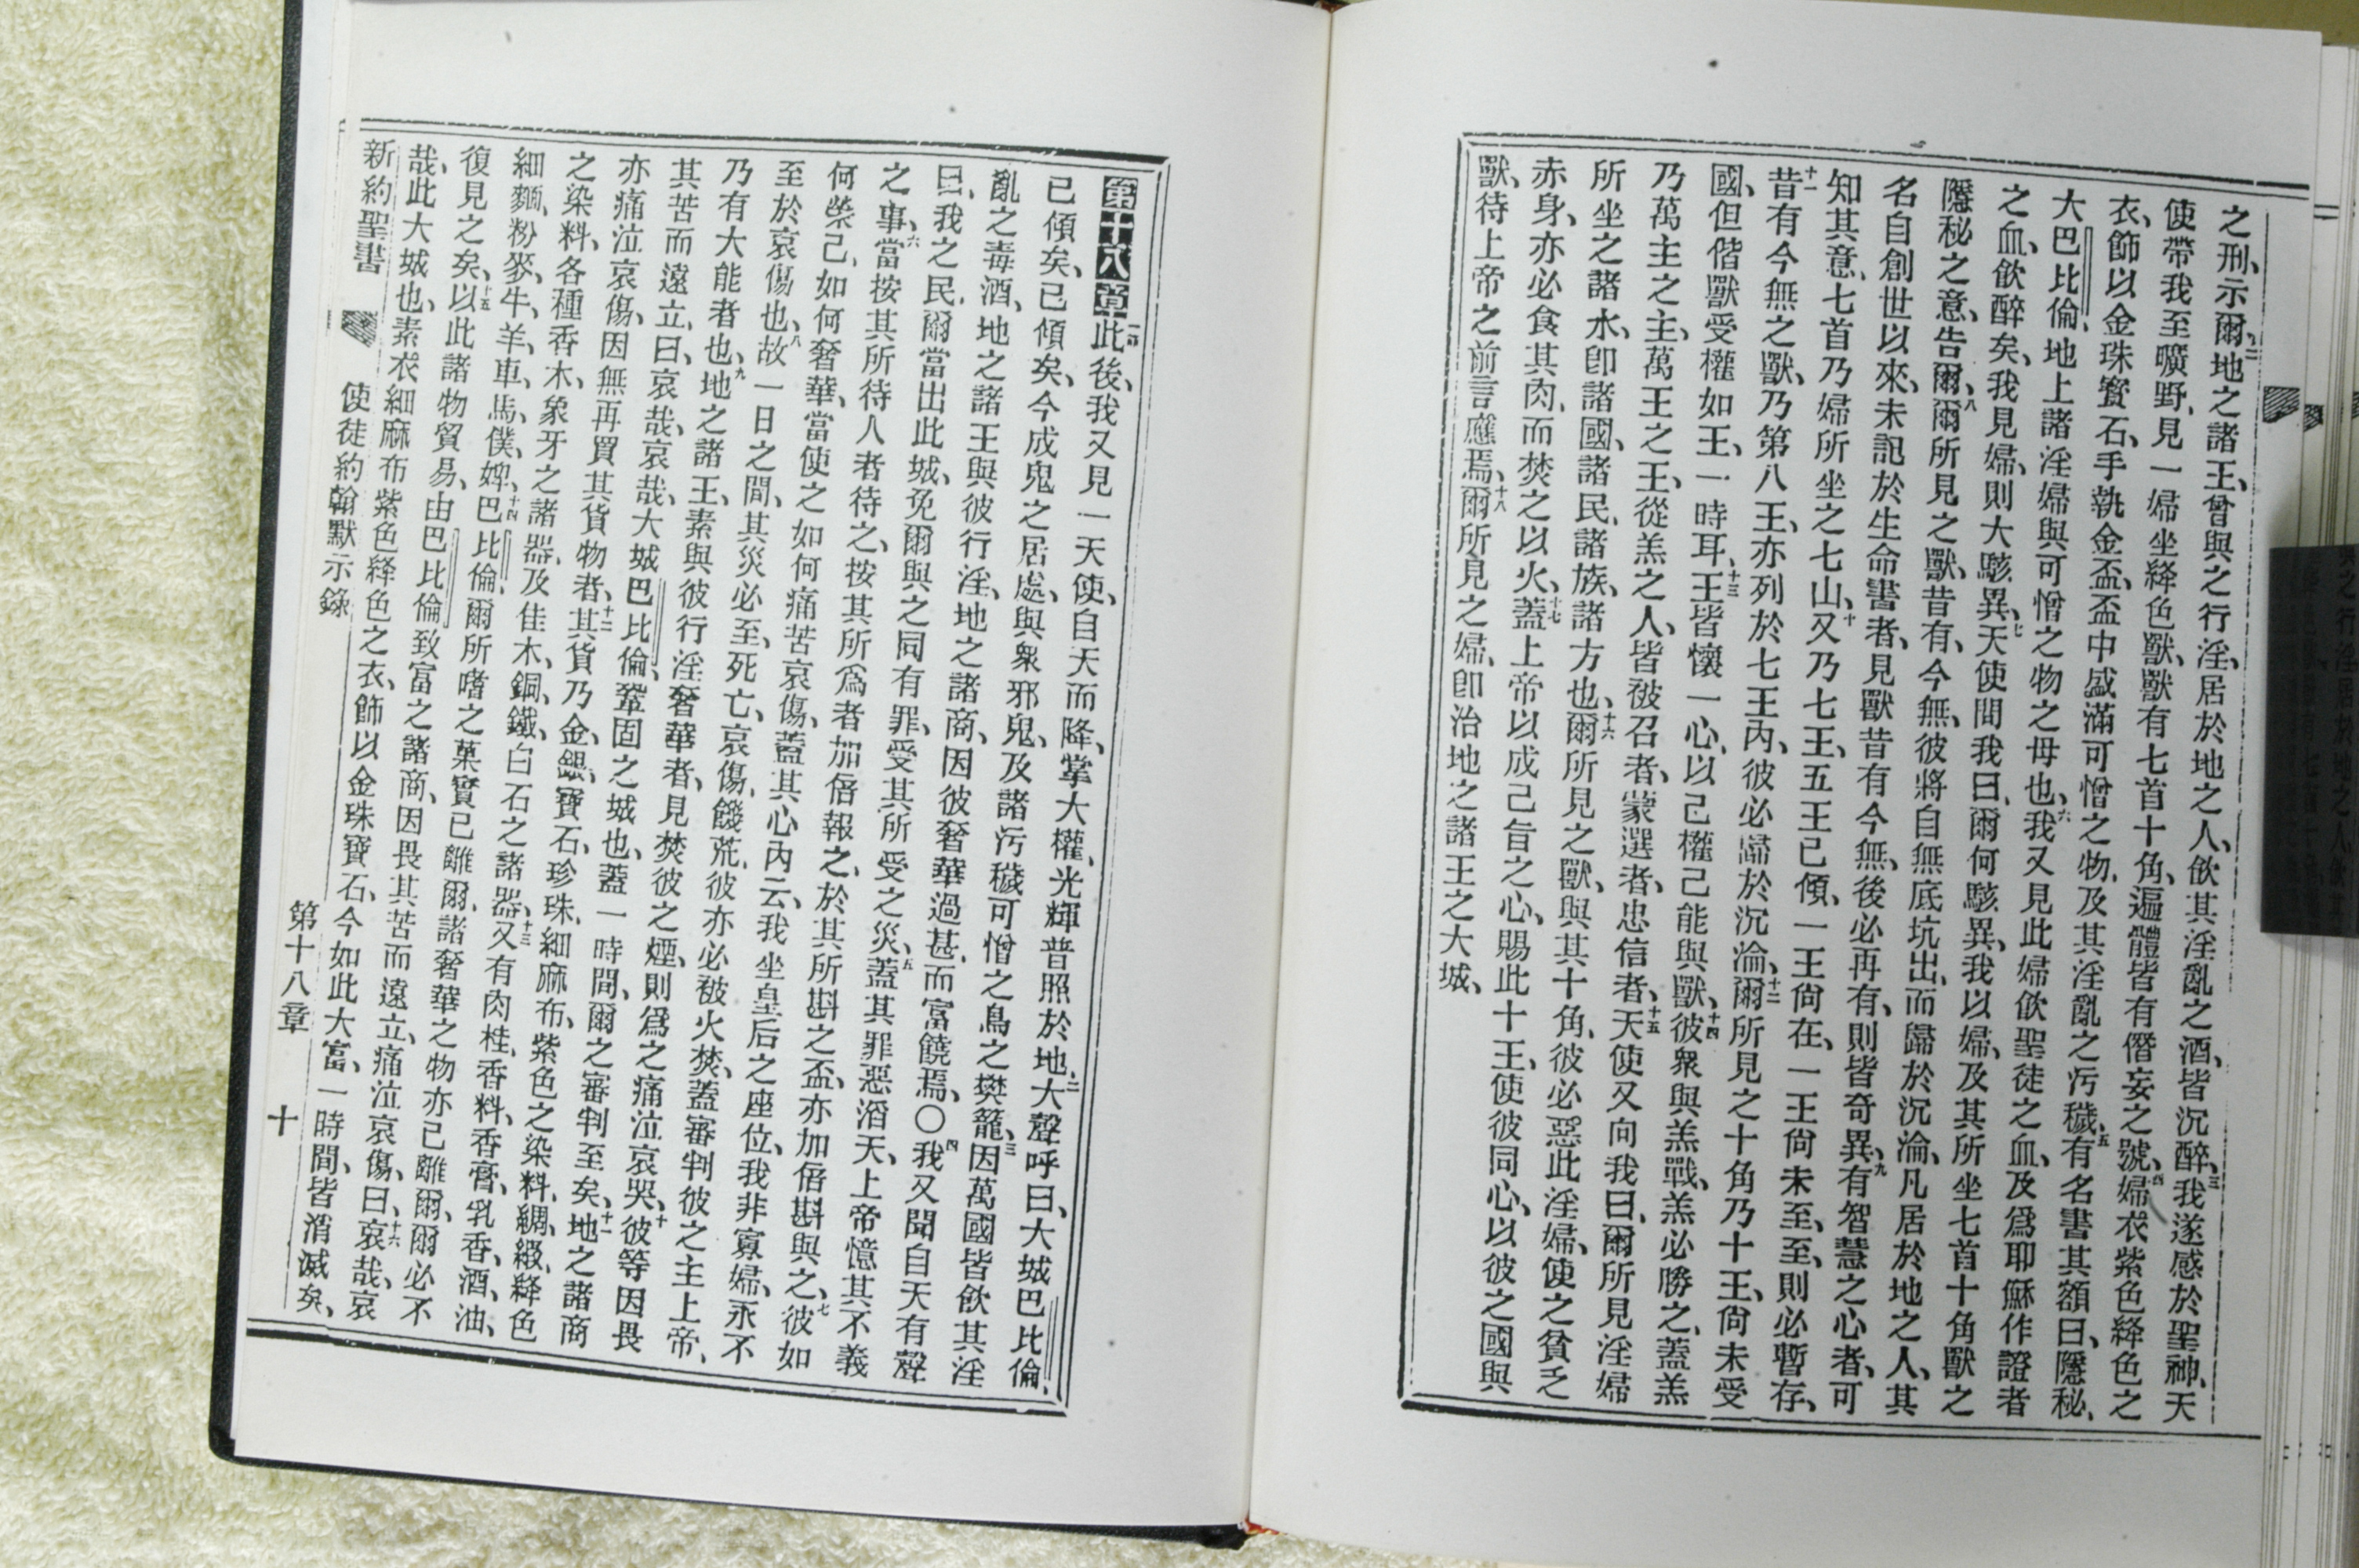 之刑、示爾、二地之諸王、曾與之行淫、居於地之人、飲其淫亂之酒、皆沉醉、三我遂感於聖神、天
使帶我至曠野、見一婦坐絳色獸、獸有七首十角、遍體皆有僭妄之號、四婦衣紫色絳色之
衣、飾以金珠寶石、手執金盃、盃中盛滿可憎之物、及其淫亂之污穢、五有名書其額曰、隱秘、
大巴比倫、地上諸淫婦與可憎之物之母也、六我又見此婦飲聖徒之血、及爲耶穌作證者
之血、飲醉矣、我見婦、則大駭異、七天使問我曰、爾何駭異、我以婦、及其所坐七首十角獸之
隱秘之意、告爾、八爾所見之獸、昔有、今無、彼將自無底坑出、而歸於沉淪、凡居於地之人、其
名自創世以來、未記於生命書者、見獸昔有今無、後必再有、則皆奇異、九有智慧之心者、可
知其意、七首乃婦所坐之七山、十又乃七王、五王已傾、一王尙在、一王尙未至、至則必暫存、
十一昔有今無之獸、乃第八王、亦列於七王內、彼必歸於沉淪、十二爾所見之十角乃十王、尙未受
國、但偕獸受權如王、一時耳、十三王皆懷一心、以己權己能與獸、十四彼衆與羔戰、羔必勝之、蓋羔
乃萬主之主、萬王之王、從羔之人、皆被召者、蒙選者、忠信者、十五天使又向我曰、爾所見淫婦
所坐之諸水、卽諸國、諸民、諸族、諸方也、十六爾所見之獸、與其十角、彼必惡此淫婦、使之貧乏
赤身、亦必食其肉、而焚之以火、十七蓋上帝以成己旨之心、賜此十王、使彼同心、以彼之國與
獸、待上帝之前言應焉、十八爾所見之婦、卽治地之諸王之大城、
第十八章一節此後、我又見一天使、自天而降、掌大權、光輝普照於地、二大聲呼曰、大城巴比倫、
已傾矣、已傾矣、今成鬼之居處、與衆邪鬼、及諸污穢可憎之鳥之樊籠、三因萬國皆飲其淫
亂之毒酒、地之諸王與彼行淫、地之諸商、因彼奢華過甚、而富饒焉、〇四我又聞自天有聲
曰、我之民、爾當出此城、免爾與之同有罪、受其所受之災、五蓋其罪惡滔天、上帝憶其不義
之事、六當按其所待人者待之、按其所爲者加倍報之、於其所斟之盃、亦加倍斟與之、七彼如
何榮己、如何奢華、當使之如何痛苦哀傷、蓋其心內云、我坐皇后之座位、我非寡婦、永不
至於哀傷也、八故一日之間、其災必至、死亡、哀傷、饑荒、彼亦必被火焚、蓋審判彼之主上帝、
乃有大能者也、九地之諸王、素與彼行淫奢華者、見焚彼之煙、則爲之痛泣哀哭、十彼等因畏
其苦而遠立、曰、哀哉、哀哉、大城巴比倫、鞏固之城也、蓋一時間、爾之審判至矣、十一地之諸商
亦痛泣哀傷、因無再買其貨物者、十二其貨乃金、銀、寶石、珍珠、細麻布、紫色之染料、綢緞、絳色
之染料、各種香木、象牙之諸器、及佳木、銅、鐵、白石之諸器、十三又有肉桂、香料、香膏、乳香、酒、油、
細麵、粉、麥、牛、羊、車、馬、僕、婢、十四巴比倫、爾所嗜之菓實已離爾、諸奢華之物亦已離爾、爾必不
復見之矣、十五以此諸物貿易、由巴比倫致富之諸商、因畏其苦而遠立、痛泣哀傷、曰、十六哀哉、哀
哉、此大城也、素衣細麻布紫色絳色之衣、飾以金珠寶石、今如此大富、一時間、皆消滅矣、
新約聖書 使徒約翰默示錄 第十八章 十